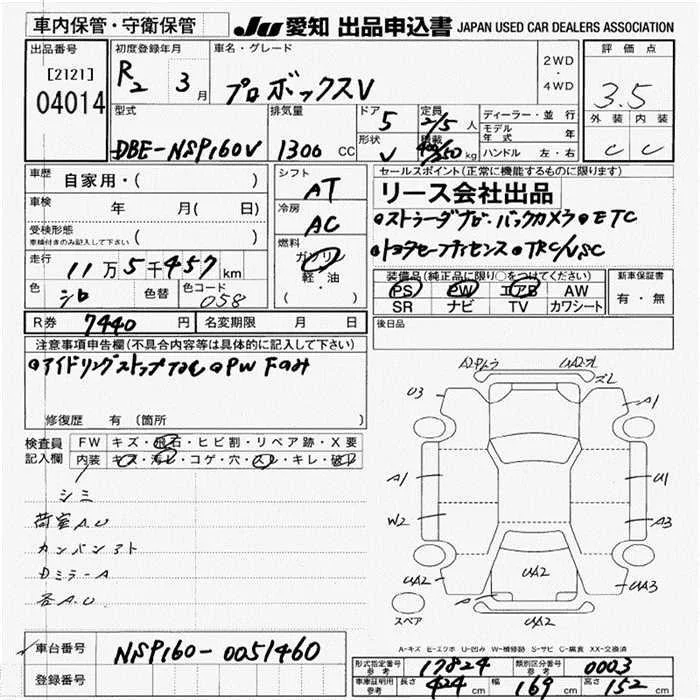 車内保管・守衛保管
JU 愛知 出品申込書 JAPAN USED CAR DEALERS ASSOCIATION
出品番号
[2121]
04014
初度登録年月
R2 3月
車名・グレード
プロボックスV
2WD
・
4WD
評価点
3.5
外装 内装
C C
型式
DBE-NSP160V
排気量
1300 CC
ドア
5
形状
V
定員
2/5人
積載
400/250kg
ディーラー・並行
モデル年式 年
ハンドル 左・右
車歴 自家用・( )
車検 年 月( 日)
受検形態
車検付きのみ記入して下さい ( )
走行 11万5千457km
色 シロ 色替 色コード 058
シフト
AT
冷房
AC
燃料
ガソリン
軽・油
( )
セールスポイント(正常に機能するものに限ります)
リース会社出品
●ストラーダナビ・バックカメラ●ETC
●トヨタセーフティセンス●TRC/VSC
装備品(純正品に限り○をつけてください)
PS PW エアB AW
SR ナビ TV カワシート
新車保証書
有・無
R券 7440円 名変期限 月 日
後日品
注意事項申告欄(不具合内容等は具体的に記入して下さい)
●アイドリングストップ ●PW Fのみ
修復歴 有(箇所 )
検査員記入欄
FW キズ・飛石・ヒビ割・リペア跡・X要
内装 キズ・汚レ・コゲ・穴・スレ・キレ・破レ
シミ
荷室A.U
カンバンアト
Dミラ-A
各A.U
UA2
ズレ
U3
A1
A1
U1
W2
A3
UA2
UA2
UA2
UA3
スペア
UA2
A-キズ E-エクボ U-凹み W-補修跡 S-サビ C-腐食 XX-交換済
車台番号 NSP160-0051460
登録番号
形式指定番号 参考 17824 類別区分番号 参考 0003
車庫証明用 参考 長さ 424cm 幅 169cm 高さ 152cm